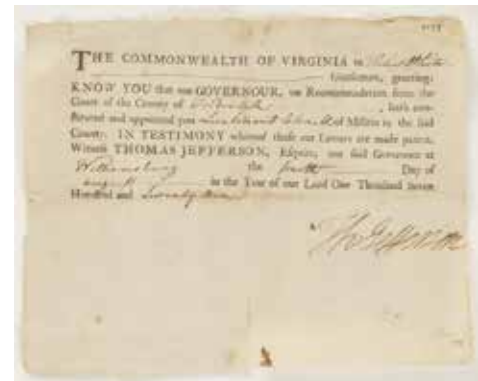 THE COMMONWEALTH OF VIRGINIA to
Gentleman, greeting:
KNOW YOU that our GOVERNOUR, on Recommendation from the
Court of the County of , hath con-
stituted and appointed you Lieutenant of Militia in the said
County. IN TESTIMONY whereof these our Letters are made patent.
Witness THOMAS JEFFERSON, Esquire, our said Governour at
Williamsburg the Day of
august in the Year of our Lord One Thousand Seven
Hundred and
Th Jefferson